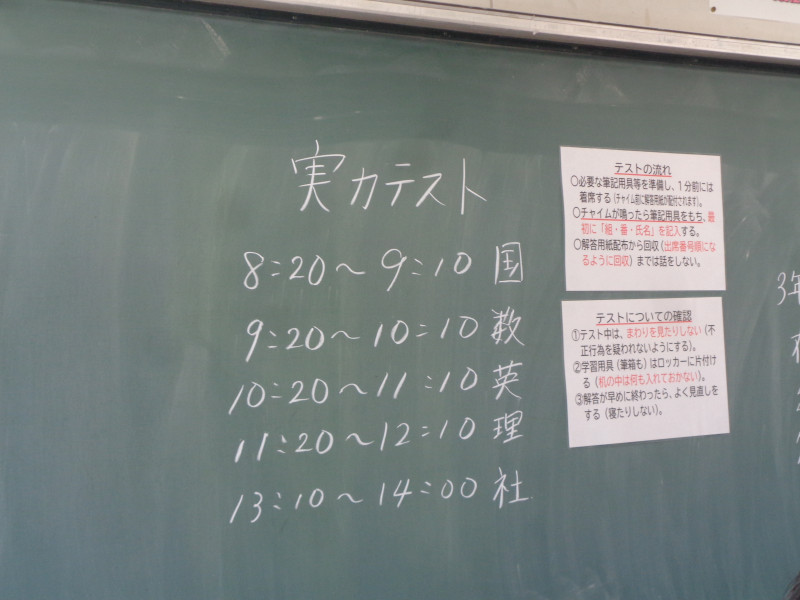 実力テスト
8:20～9:10 国
9:20～10:10 数
10:20～11:10 英
11:20～12:10 理
13:10～14:00 社
テストの流れ
○必要な筆記用具等を準備し、１分前には
着席する（チャイム前に解答用紙が配付されます）。
○チャイムが鳴ったら筆記用具をもち、最
初に「組・番・氏名」を記入する。
○解答用紙配布から回収（出席番号順にな
るように回収）までは話をしない。
テストについての確認
①テスト中は、まわりを見たりしない（不
正行為を疑われないようにする）。
②学習用具（筆箱も）はロッカーに片付け
る（机の中は何も入れておかない）。
③解答が早めに終わったら、よく見直しを
する（寝たりしない）。
3年